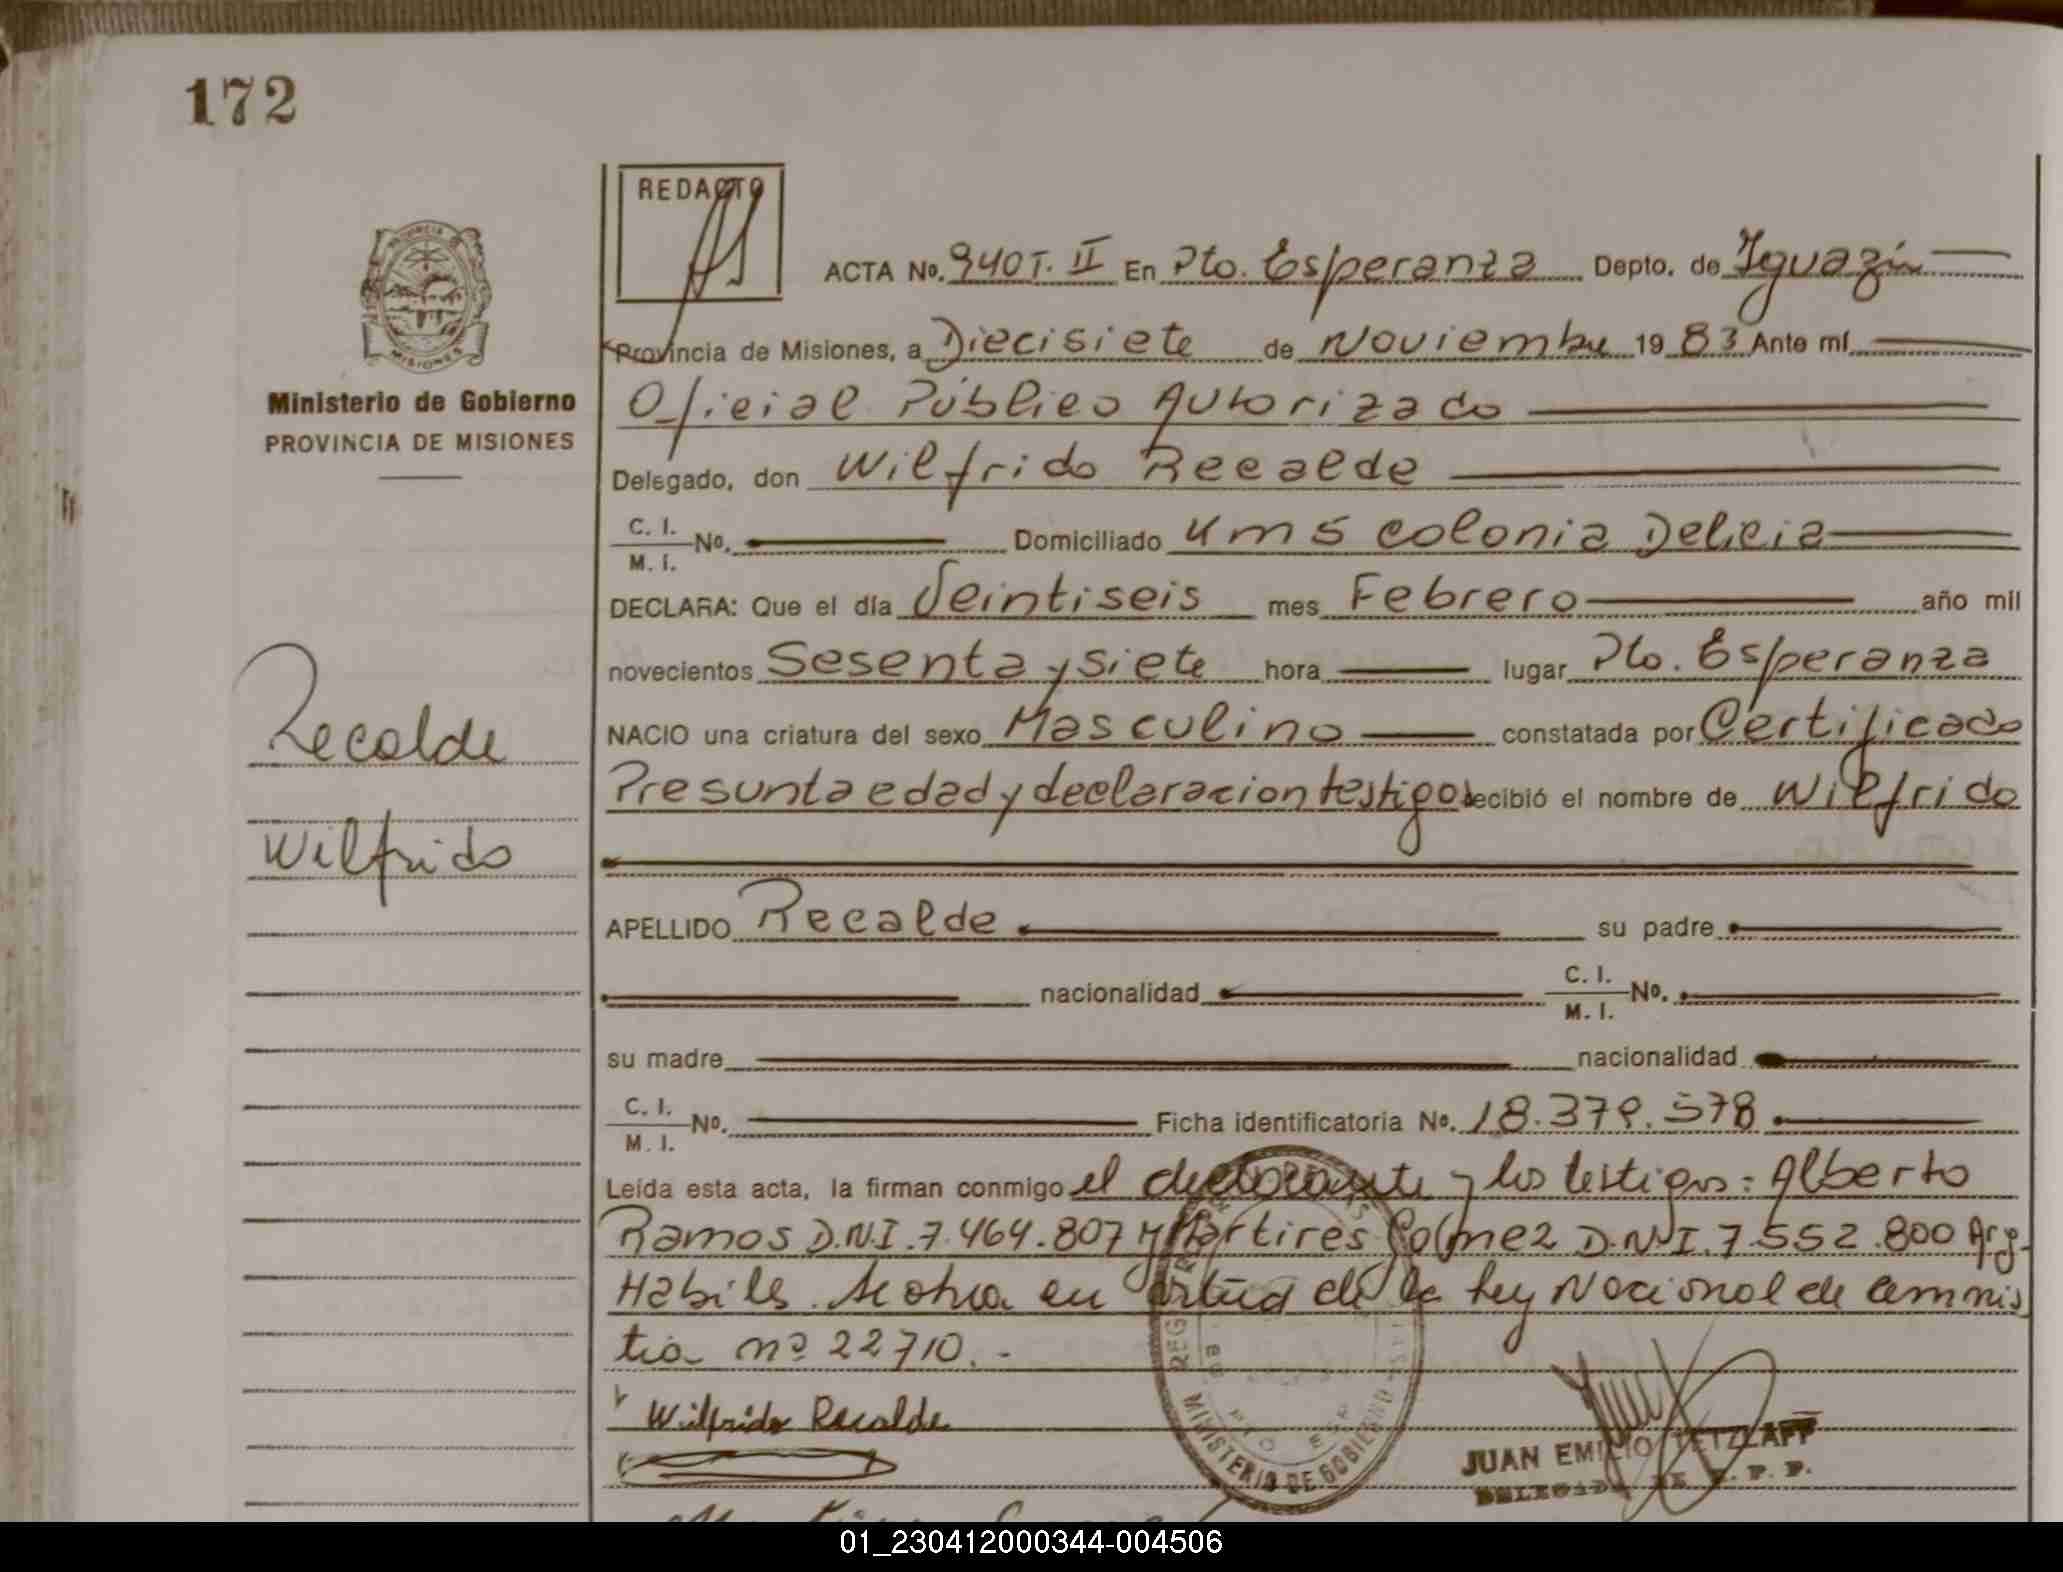 172
REDACTO
ACTA No. 940 T. II En Pto. Esperanza Depto. de Iguazú
Provincia de Misiones, a Diecisiete de Noviembre 19 83 Ante mí
Oficial Público Autorizado
Ministerio de Gobierno
PROVINCIA DE MISIONES
Delegado, don Wilfrido Recalde
C. I.
M. I. No. Domiciliado Km 5 Colonia Delicia
DECLARA: Que el día Veintiseis mes Febrero año mil
novecientos Sesenta y siete hora lugar Pto. Esperanza
NACIO una criatura del sexo Masculino constatada por Certificado
Presunta edad y declaracion testigos recibió el nombre de Wilfrido
Recalde
Wilfrido
APELLIDO Recalde su padre
nacionalidad C. I.
M. I. No.
su madre nacionalidad
C. I.
M. I. No. Ficha identificatoria No. 18.379.578
Leída esta acta, la firman conmigo el declarante y los testigos: Alberto
Ramos D.N.I. 7.464.807 y Martires D.N.I. 7.552.800 Arg.
Habiles. en virtud de la ley Nacional de
tia nº 22710.-
Wilfrido Recalde
MINISTERIO DE GOBIERNO
JUAN EMILIO TETZLAFF
DELEGADO DE R. P. P.
01_230412000344-004506